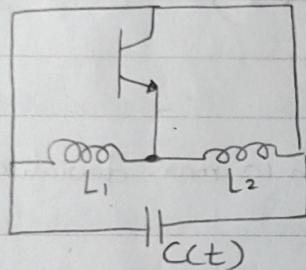 L₁ L₂
C(t)